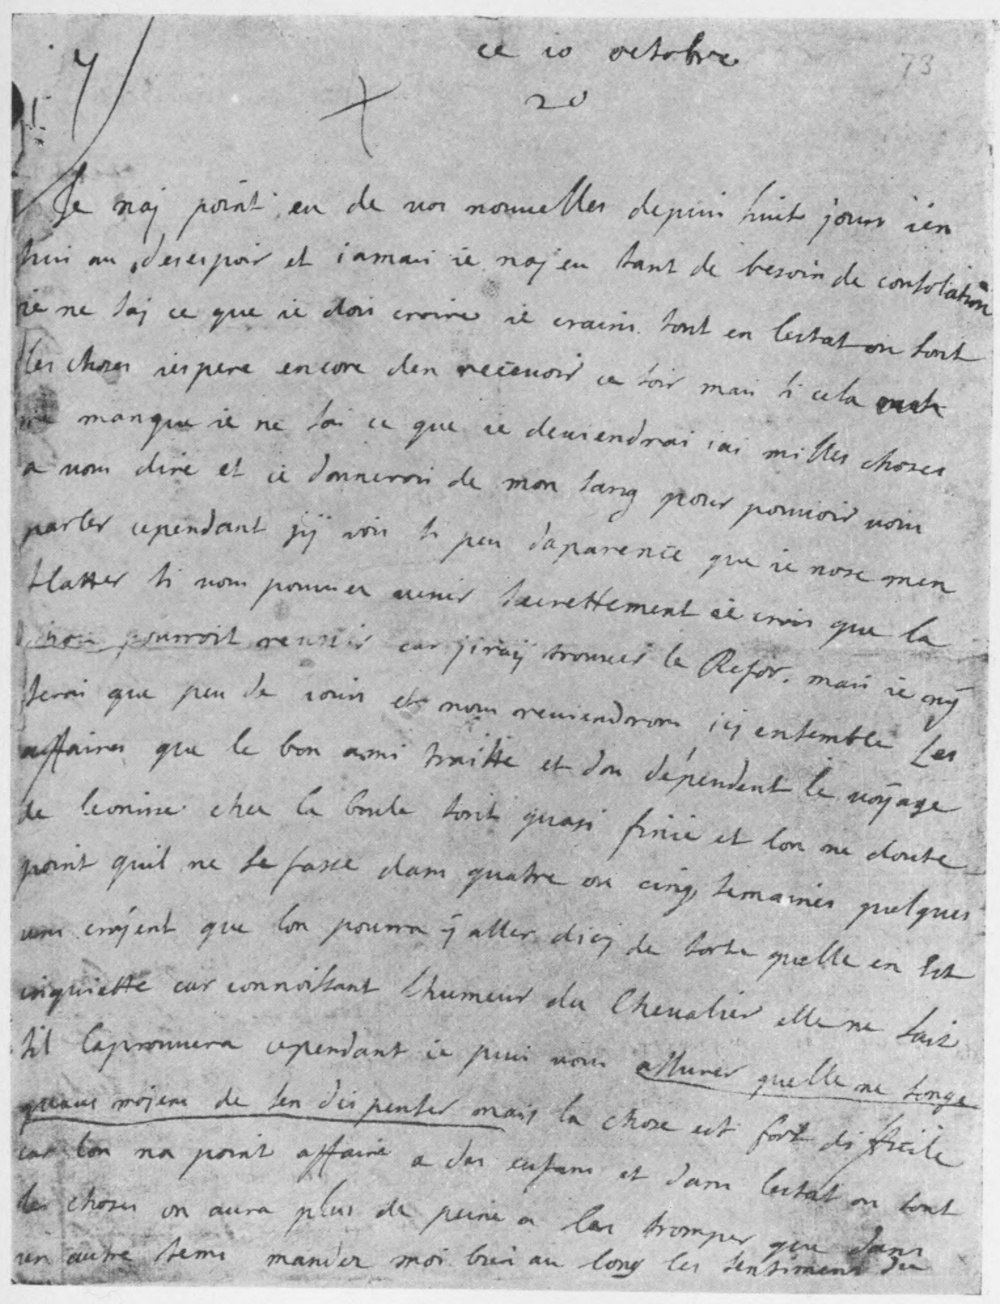 ce 10 octobre
73
20
Je naj point eu de vos nouvelles depuis huit jours i'en
suis au desespoir et iamais ie naj eu tant de besoin de consolation
ie ne saj ce que ie dois croire ie crains tout en lestat ou sont
les choses iespere encore den recevoir ce soir mais si cela
me manque ie ne sai ce que ie deuiendrai iai milles choses
a vous dire et ie donnerois de mon sang pour pouuoir vous
parler cependant jÿ vois si peu daparence que ie nose men
flatter si vous pouuiez venir secrettement ie crois que la
chose pourroit reussir car jiraÿ trouuer le Refor. mais ie nÿ
serai que peu de iours et nous reuiendrons icy ensemble Les
affaires que le bon ami traitte et dou dependent le voÿage
de leonisse chez la boule sont quasi finie et lon ne doute
point quil ne se fasse dans quatre ou cinq semaines quelques
uns croÿent que lon pourra ÿ aller dicj de sorte quelle en est
inquiette car connoissant lhumeur du Chevalier elle ne sait
sil laprouuera cependant ie puis vous assurer quelle ne songe
quaus moÿens de sen dispenser mais la chose est fort difficile
car lon na point affaire a des enfans et dans lestat ou sont
les choses on aura plus de peine a les tromper que dans
un autre tems mandez moi bien au long les sentimens du